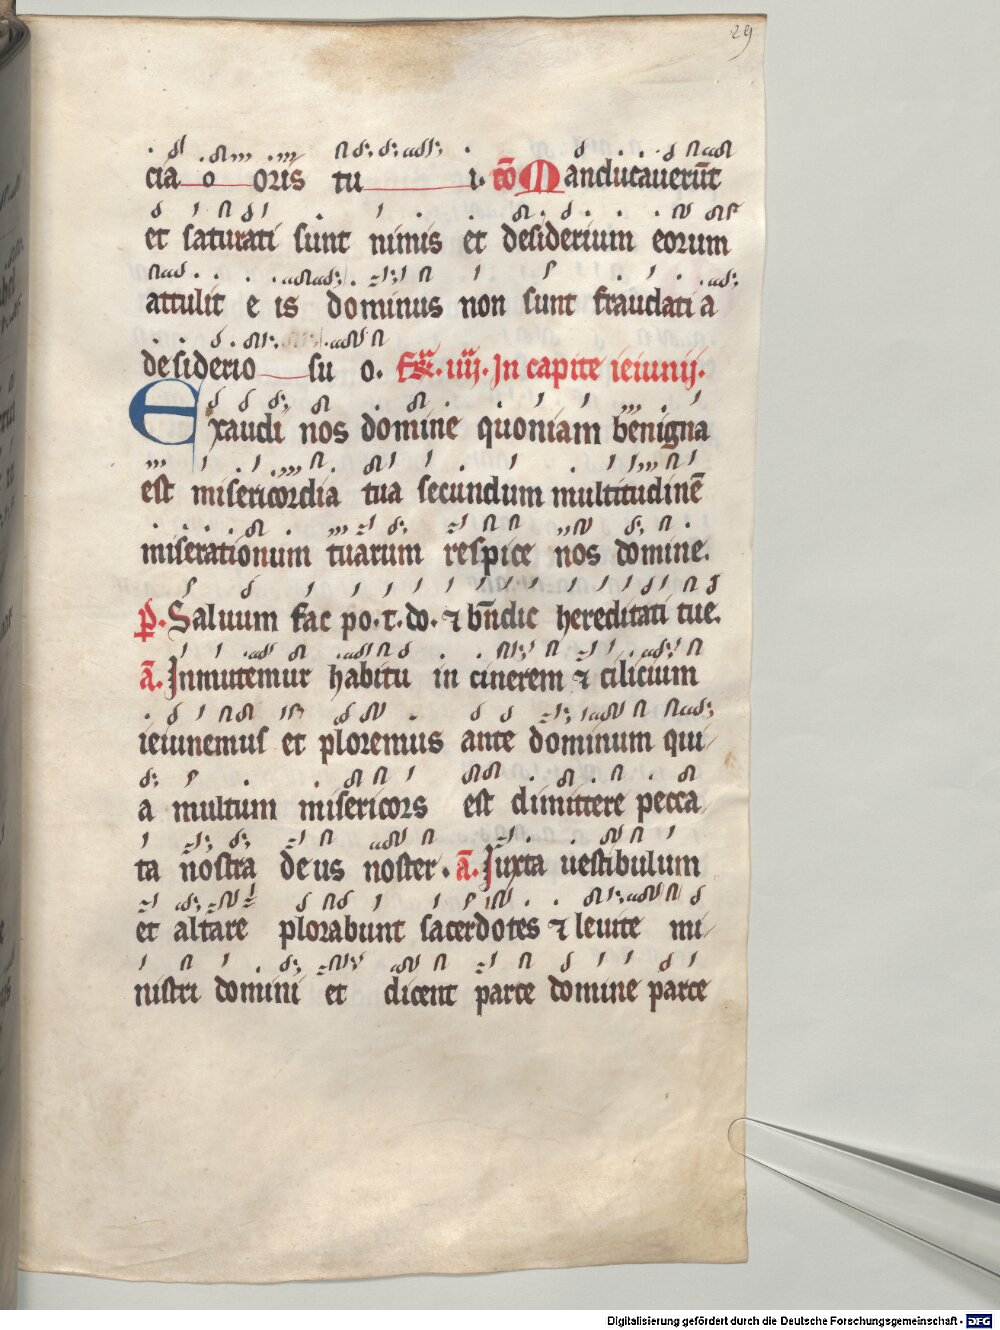 29
cia o oris tu i. cō Manducauerūt
et saturati sunt nimis et desiderium eorum
attulit e is dominus non sunt fraudati a
desiderio su o. iiij. In capite ieiunij.
Exaudi nos domine quoniam benigna
est misericordia tua secundum multitudinē
miserationum tuarum respice nos domine.
p̄. Saluum fac po. t. do. ⁊ bn̄dic hereditati tue.
ā. Inmutemur habitu in cinerem ⁊ cilicium
ieiunemus et ploremus ante dominum qui
a multum misericors est dimittere pecca
ta nostra deus noster. ā. Iuxta uestibulum
et altare plorabunt sacerdotes ⁊ leuite mi
nistri domini et dicent parce domine parce
Digitalisierung gefördert durch die Deutsche Forschungsgemeinschaft - DFG